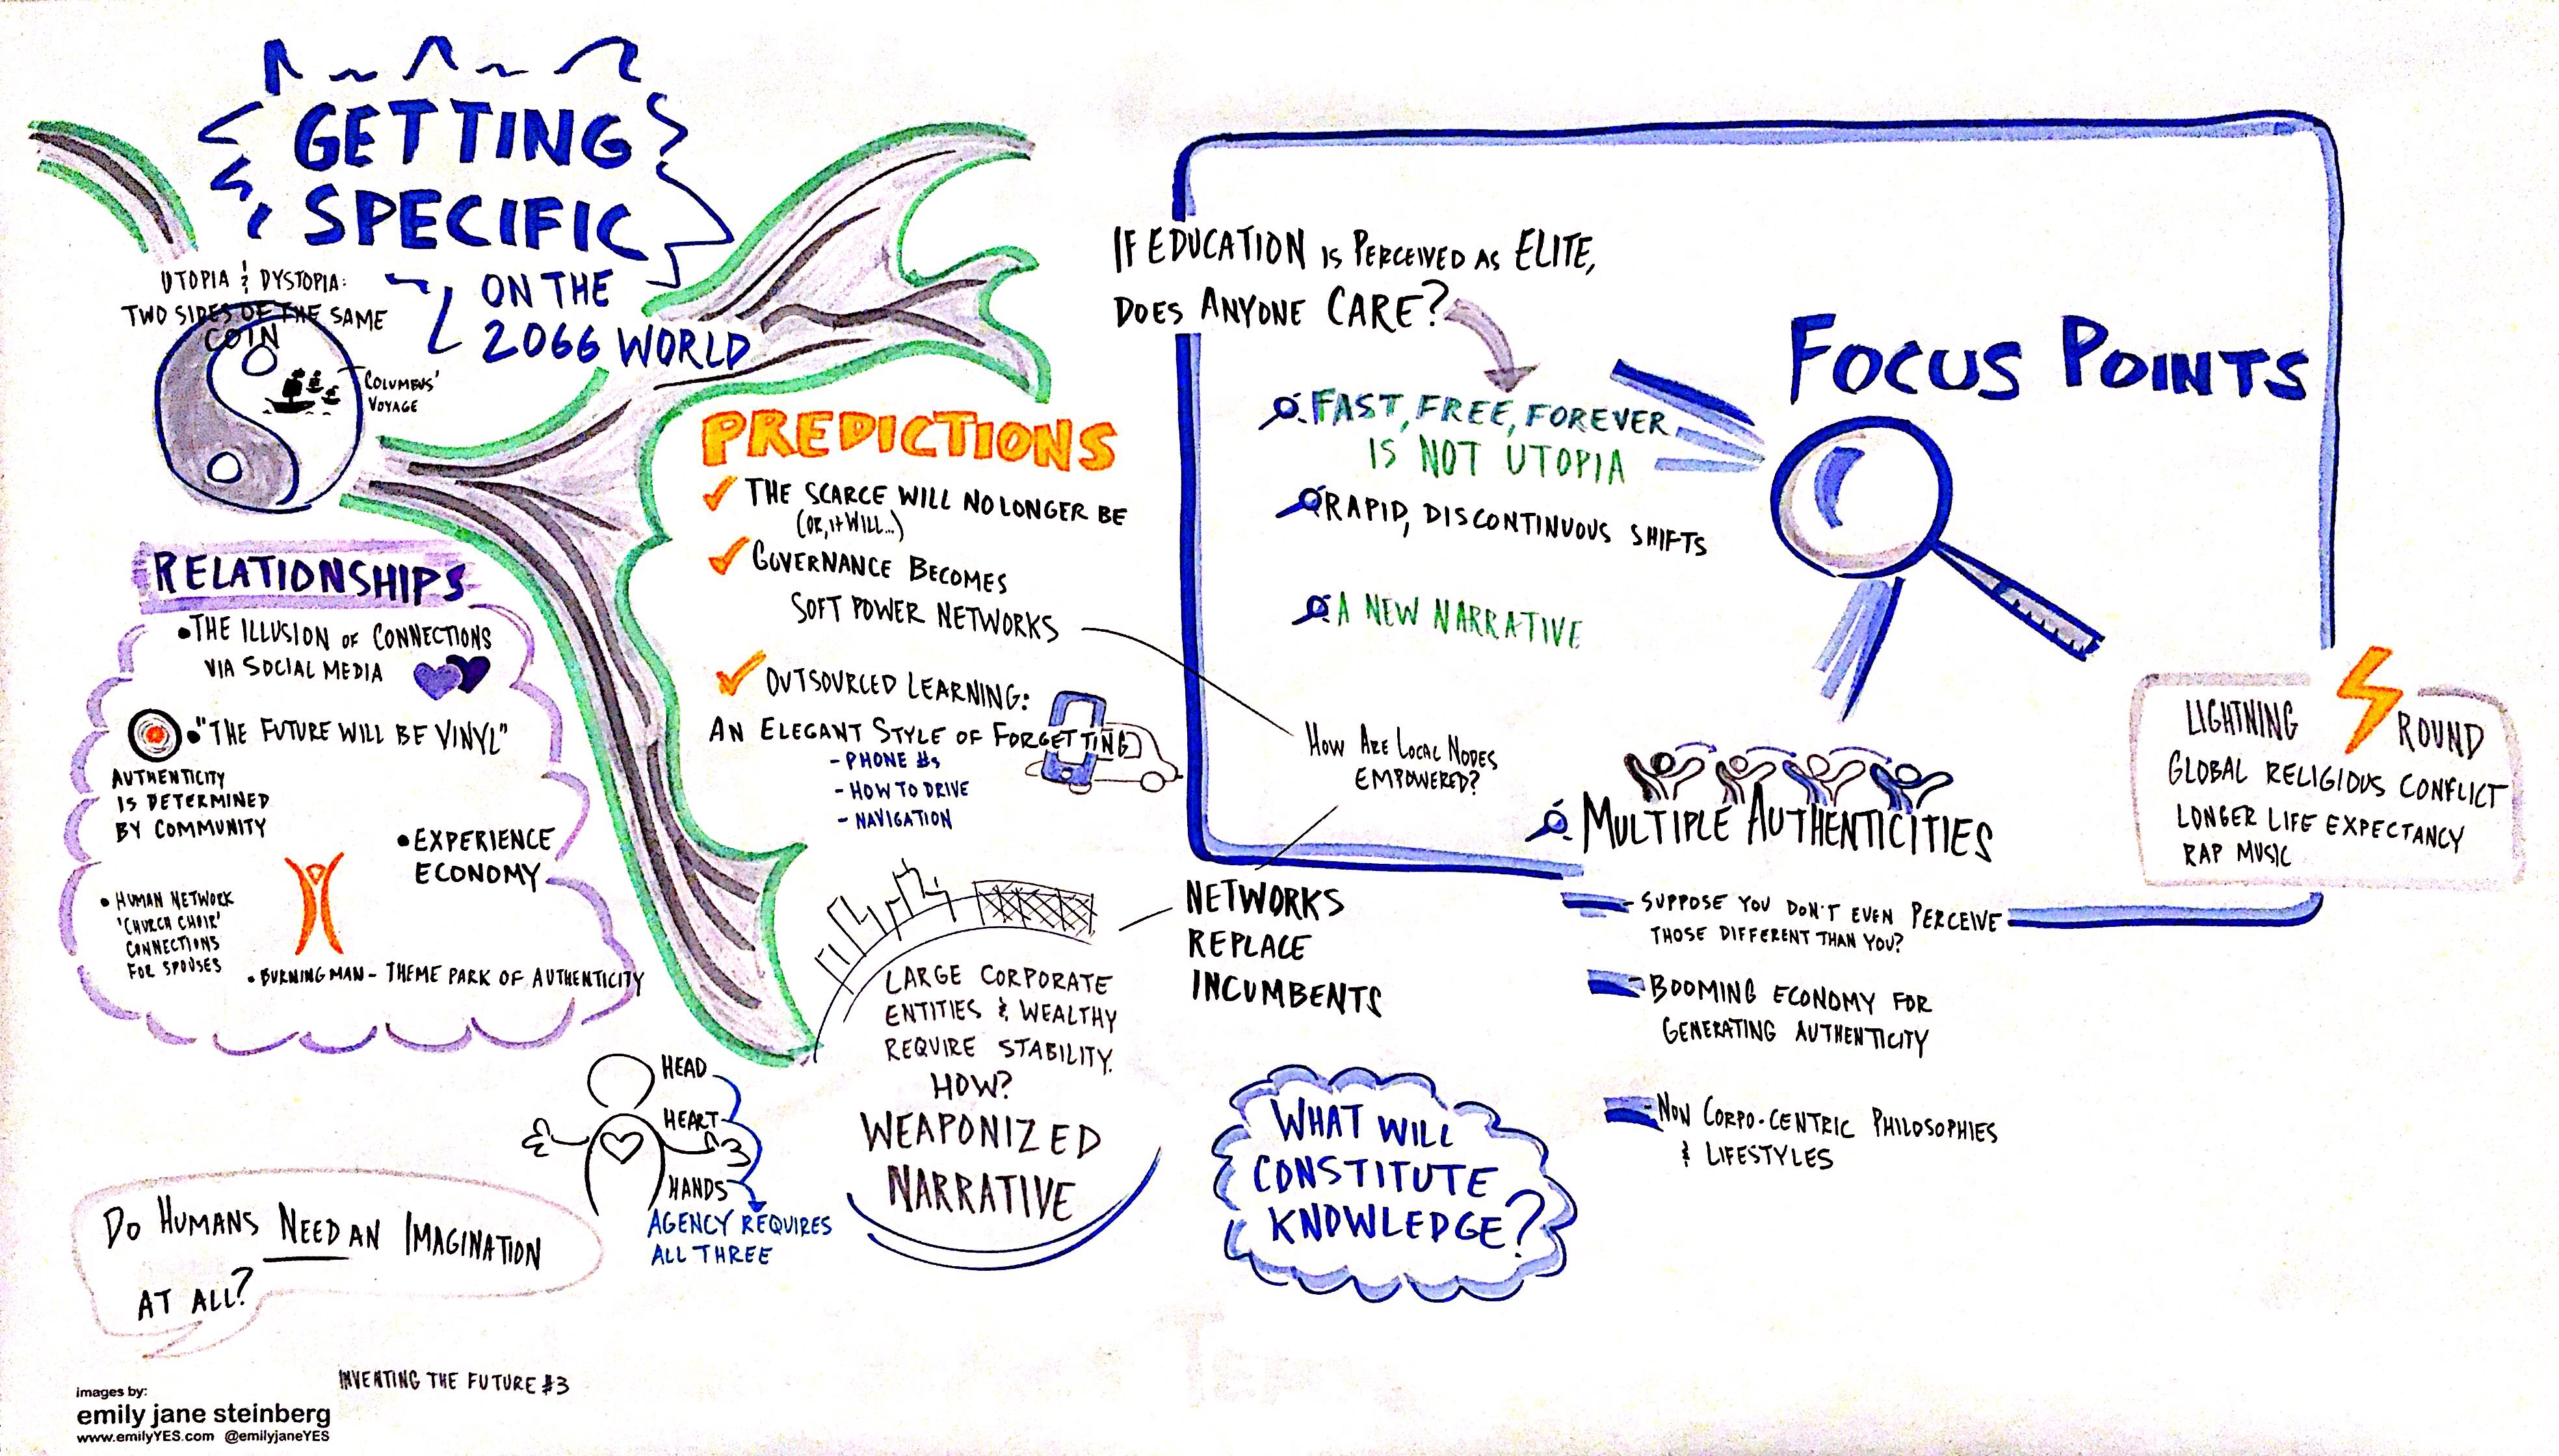 GETTING
SPECIFIC
ON THE
2066 WORLD
UTOPIA & DYSTOPIA:
TWO SIDES OF THE SAME
COIN
COLUMBUS'
VOYAGE
PREDICTIONS
THE SCARCE WILL NO LONGER BE
(OR, IT WILL...)
GOVERNANCE BECOMES
SOFT POWER NETWORKS
OUTSOURCED LEARNING:
AN ELEGANT STYLE OF FORGETTING
- PHONE #s
- HOW TO DRIVE
- NAVIGATION
RELATIONSHIPS
• THE ILLUSION OF CONNECTIONS
VIA SOCIAL MEDIA
• "THE FUTURE WILL BE VINYL"
AUTHENTICITY
IS DETERMINED
BY COMMUNITY
• EXPERIENCE
ECONOMY
• HUMAN NETWORK
'CHURCH CHOIR'
CONNECTIONS
FOR SPOUSES
• BURNING MAN - THEME PARK OF AUTHENTICITY
HEAD
HEART
HANDS
AGENCY REQUIRES
ALL THREE
DO HUMANS NEED AN IMAGINATION
AT ALL?
LARGE CORPORATE
ENTITIES & WEALTHY
REQUIRE STABILITY.
HOW?
WEAPONIZED
NARRATIVE
IF EDUCATION IS PERCEIVED AS ELITE,
DOES ANYONE CARE?
FOCUS POINTS
FAST, FREE, FOREVER
IS NOT UTOPIA
RAPID, DISCONTINUOUS SHIFTS
A NEW NARRATIVE
HOW ARE LOCAL NODES
EMPOWERED?
NETWORKS
REPLACE
INCUMBENTS
MULTIPLE AUTHENTICITIES
SUPPOSE YOU DON'T EVEN PERCEIVE
THOSE DIFFERENT THAN YOU?
BOOMING ECONOMY FOR
GENERATING AUTHENTICITY
NON CORPO-CENTRIC PHILOSOPHIES
& LIFESTYLES
WHAT WILL
CONSTITUTE
KNOWLEDGE?
LIGHTNING ROUND
GLOBAL RELIGIOUS CONFLICT
LONGER LIFE EXPECTANCY
RAP MUSIC
INVENTING THE FUTURE #3
images by:
emily jane steinberg
www.emilyYES.com @emilyjaneYES